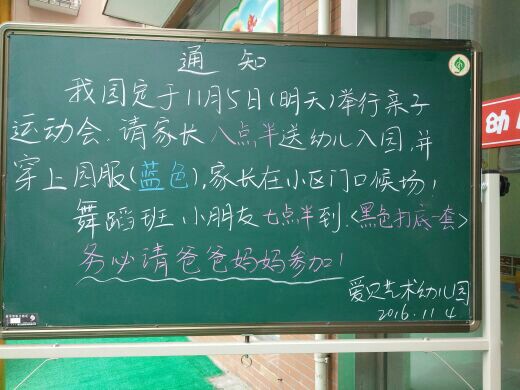 通 知
我园定于11月5日(明天)举行亲子
运动会.请家长八点半送幼儿入园,并
穿上园服(蓝色),家长在小区门口候场,
舞蹈班 小朋友七点半到.<黑色打底一套>
务必请爸爸妈妈参加!
爱贝艺术幼儿园
2016.11 4
幼